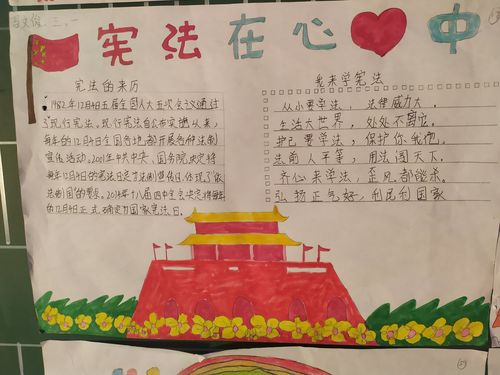 三.一
宪法在心中
宪法的来历
1982年12月4日五届全国人大五次会议通过
了现行宪法。现行宪法自公布实施以来，
每年的12月4日全国各地都开展各种法制
宣传活动。2001年中共中央、国务院决定将
每年12月4日的宪法日定为法制宣传日，体现了依
法制国的要求。2014年十八届四中全会决定将每年
的12月4日正式确定为国家宪法日。
我来学宪法
从小要学法，法律威力大。
生活大世界，处处不离它。
护己要学法，保护你我他。
法前人平等，用法闯天下。
齐心来学法，歪风都能杀。
弘扬正气好，利民利国家